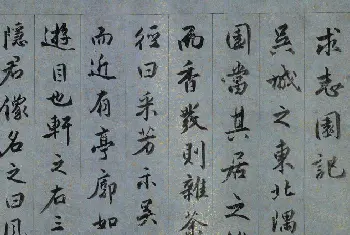 求志園記
吳城之東北隅
園當其居之
而香發則雜荼
徑曰采芳示吳
而近有亭廓如
遊目也軒之右三
隱君儀名之曰